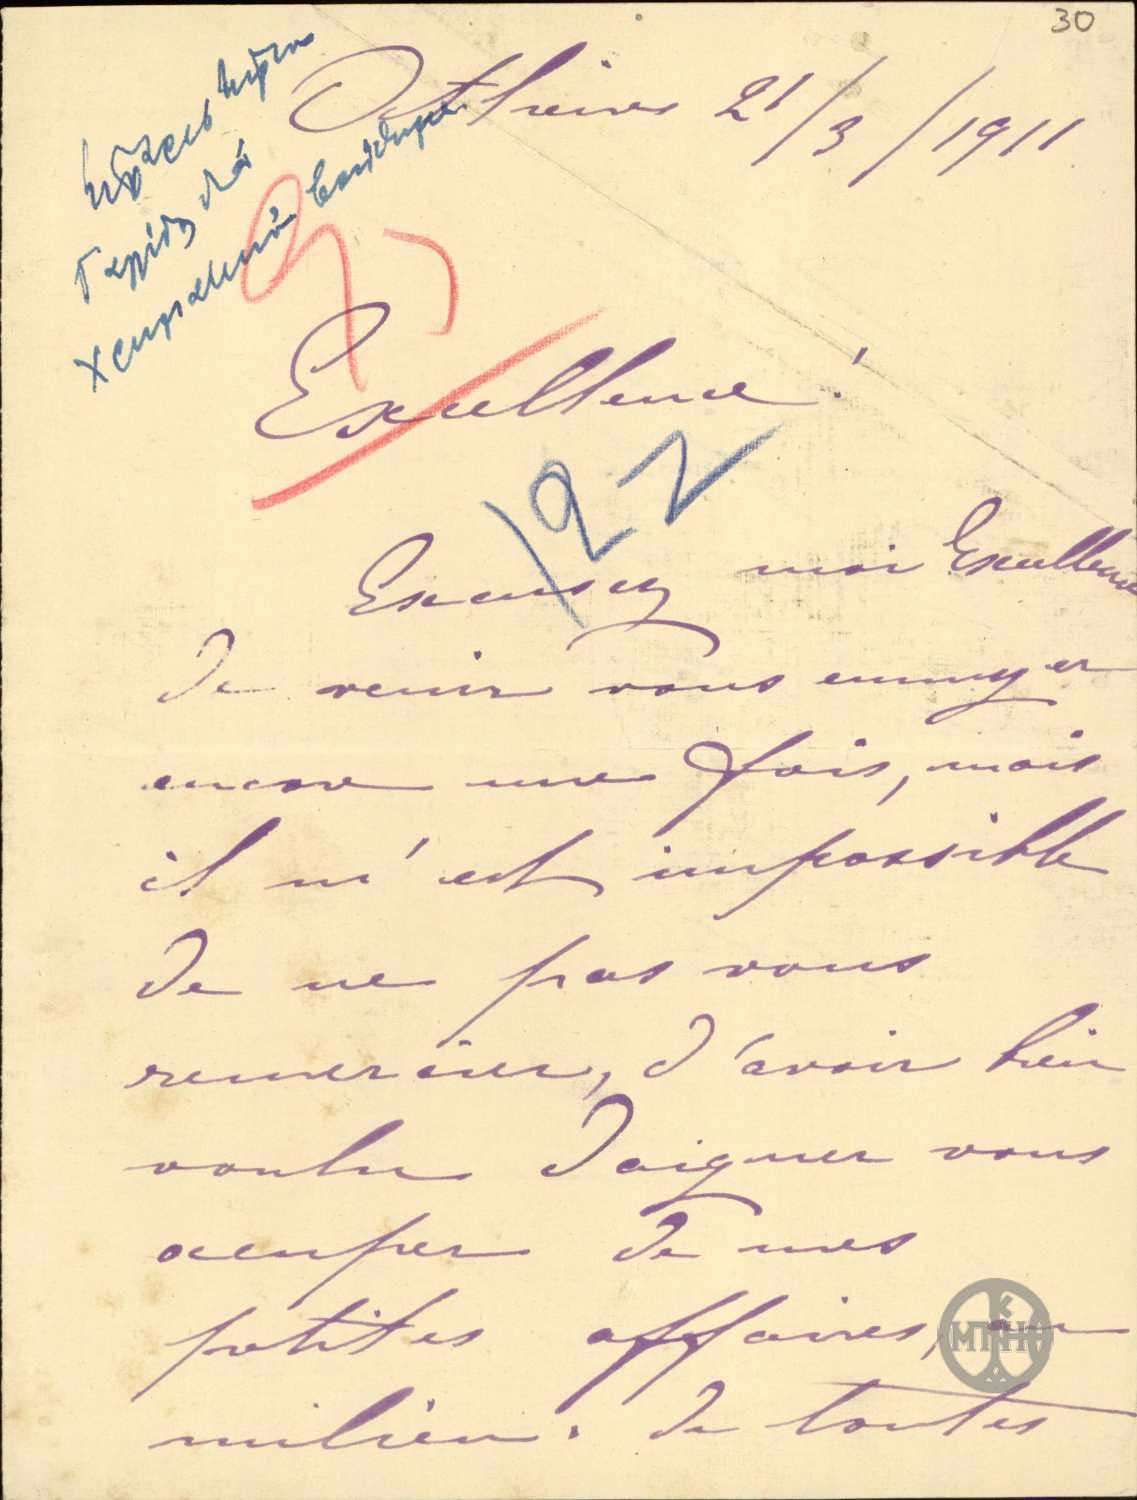 30
Athènes 21/3/1911
χρηματικόν βοήθημα
Excellence!
192
Excusez moi Excellence
de venir vous ennuyer
encore une fois, mais
il m'est impossible
de ne pas vous
remercier, d'avoir bien
voulu daigner vous
occuper de mes
petites affaires, au
milieu de toutes
ΜΠΚΗ